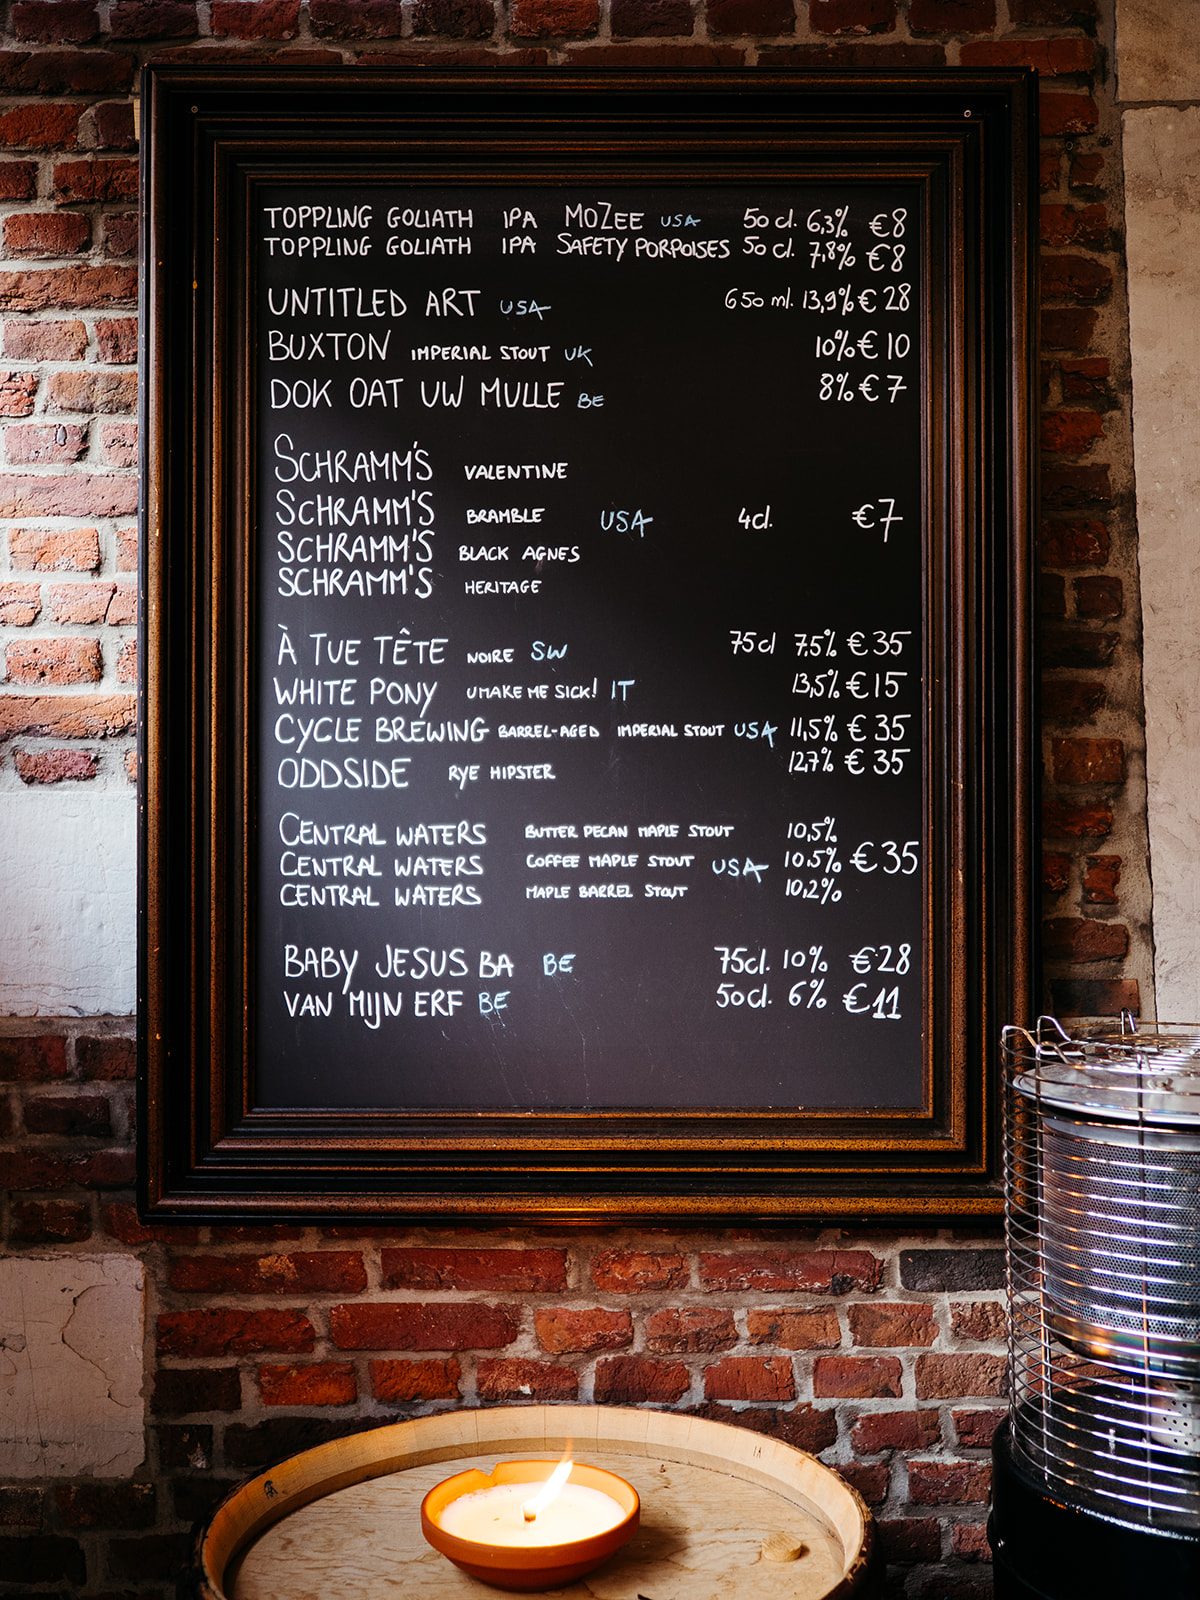 TOPPLING GOLIATH IPA MOZEE USA 50 cl. 6,3% €8
TOPPLING GOLIATH IPA SAFETY PORPOISES 50 cl. 7,8% €8
UNTITLED ART USA 650 ml. 13,9% € 28
BUXTON IMPERIAL STOUT UK 10% € 10
DOK OAT UW MULLE BE 8% € 7
SCHRAMM'S VALENTINE
SCHRAMM'S BRAMBLE USA 4cl. €7
SCHRAMM'S BLACK AGNES
SCHRAMM'S HERITAGE
À TUE TÊTE NOIRE SW 75cl 7.5% € 35
WHITE PONY UMAKE ME SICK! IT 13,5% € 15
CYCLE BREWING BARREL-AGED IMPERIAL STOUT USA 11,5% € 35
ODDSIDE RYE HIPSTER 12,7% € 35
CENTRAL WATERS BUTTER PECAN MAPLE STOUT 10,5%
CENTRAL WATERS COFFEE MAPLE STOUT USA 10.5% €35
CENTRAL WATERS MAPLE BARREL STOUT 10,2%
BABY JESUS BA BE 75cl. 10% €28
VAN MIJN ERF BE 50cl. 6% €11